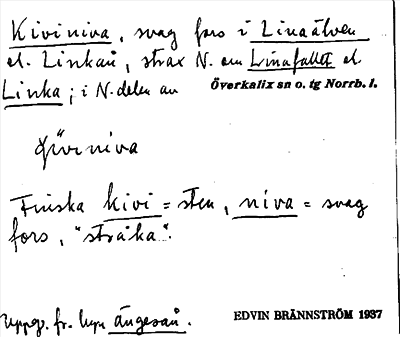 Kiviniva, svag fors i Linaälven
el. Linkaån, strax N. om Linafallet el.
Linka; i N. delen av Överkalix sn o. tg Norrb. l.
Finska kivi = sten, niva = svag
fors, "stråka".
Uppg. fr. byn Ängesån. EDVIN BRÄNNSTRÖM 1937